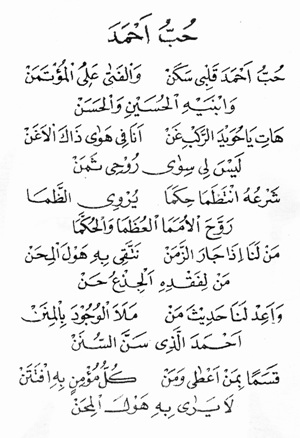 حُبُّ اَحْمَدَ
حُبُّ اَحْمَدَ قَلْبِي سَكَنْ وَالْفَتَى عَلِيُّ الْمُؤْتَمَنْ
وَابْنَيْهِ الْحُسَيْنِ وَالْحَسَنْ
هَاتِ يَاحُوَيْدَ الرَّكْبِ غَنْ اَنَا فِي هَوٰى ذَاكَ الْاَغَنْ
لَيْسَ لِي سِوٰى رُوْحِي ثَمَنْ
شَرْعُهُ انْتَظَمَا حِكَمَا يُرْوِي الظَّمَا
رَوَّحَ الْاُمَمَا الْعُظَمَا وَالْحُكَمَا
مَنْ لَنَا اِذَا جَارَ الزَّمَنْ نَتَّقِي بِهِ هَوْلَ الْمِحَنْ
مَنْ لِفَقْدِهِ الْجِذْعُ حَنْ
وَاَعِدْ لَنَا حَدِيْثَ مَنْ مَلَاَ الْوُجُوْدَ بِالْمِنَنْ
اَحْمَدَ الَّذِي سَنَّ السُّنَنْ
قَسَمًا بِمَنْ اَعْطٰى وَمَنْ كُلُّ مُؤْمِنٍ بِهِ افْتَتَنْ
لَا يَرٰى بِهِ هَوْلَ الْمِحَنْ